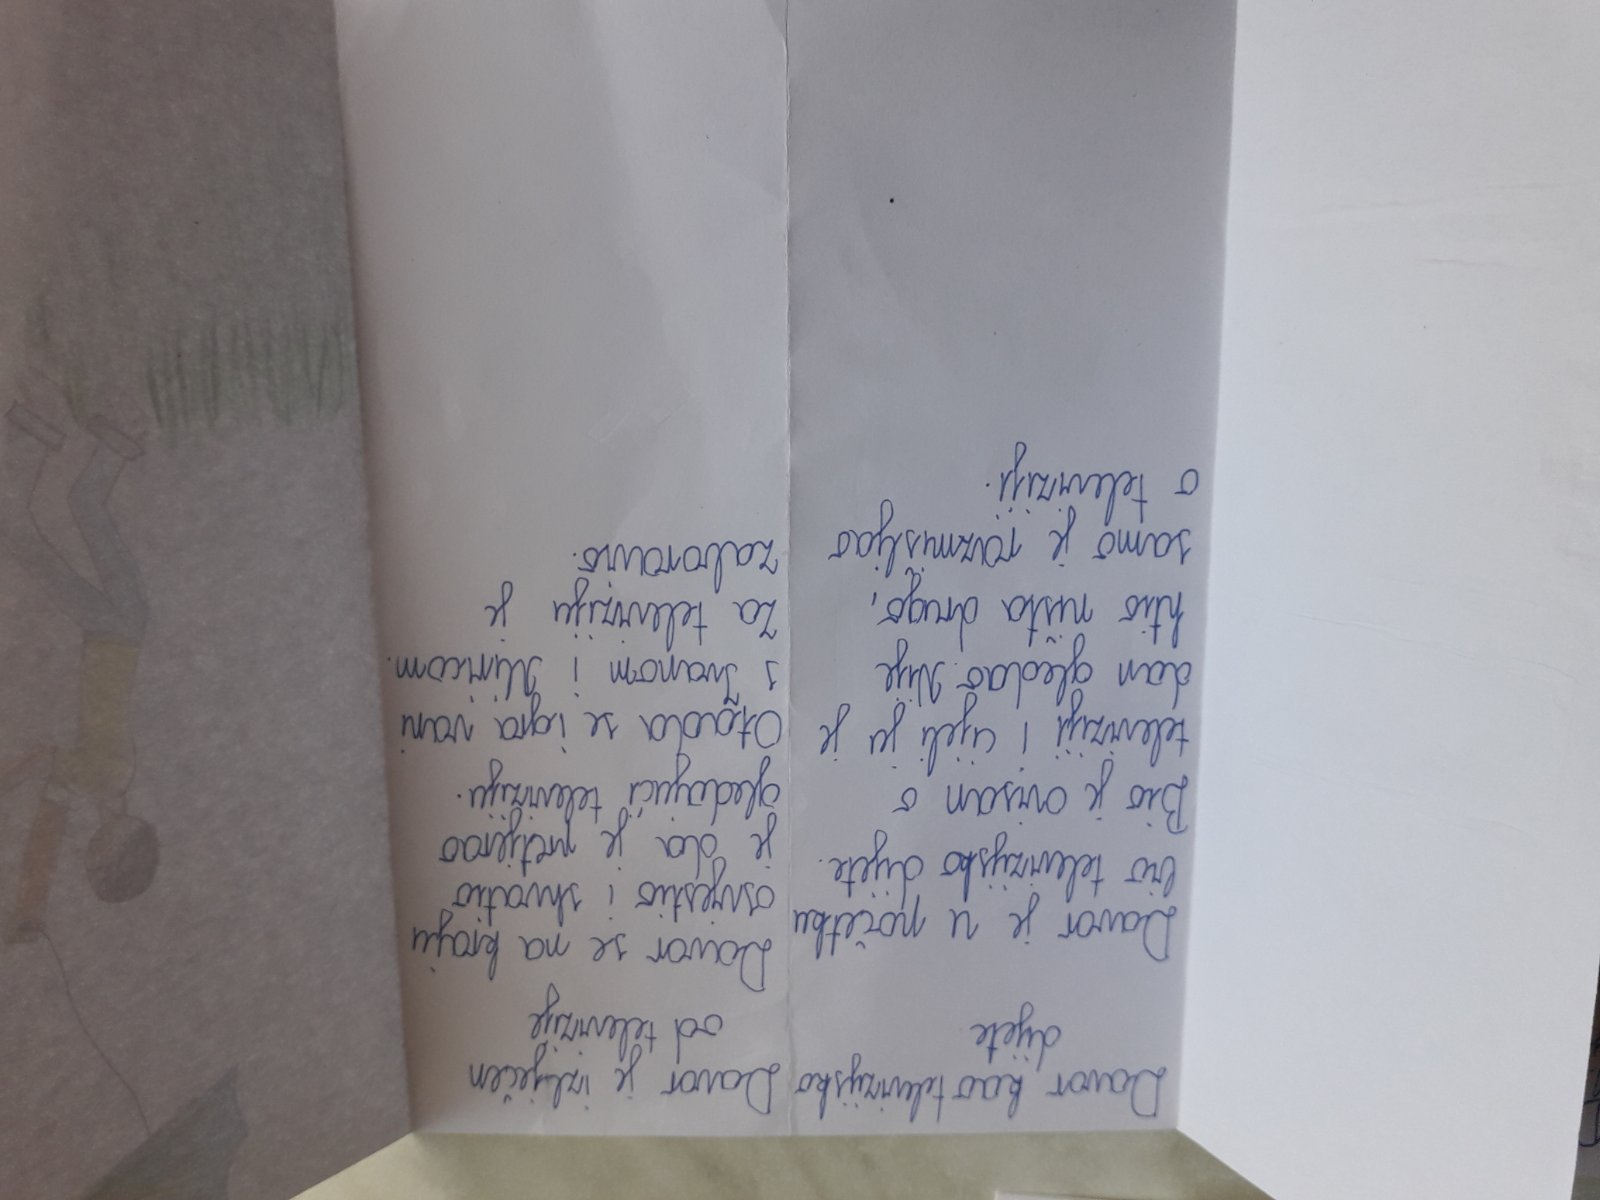 Davor kao televizijsko
dijete
Davor je u početku
bio televizijsko dijete.
Bio je ovisan o
televiziji i cijeli ju je
dan gledao. Nije
htio ništa drugo,
samo je razmišljao
o televiziji.
Davor je izliječen
od televizije
Davor se na kraju
osvjestio i shvatio
je da je pretjerao
gledajući televiziju.
Otada se igra vani
s Ivanom i Miricom.
Za televiziju je
zaboravio.